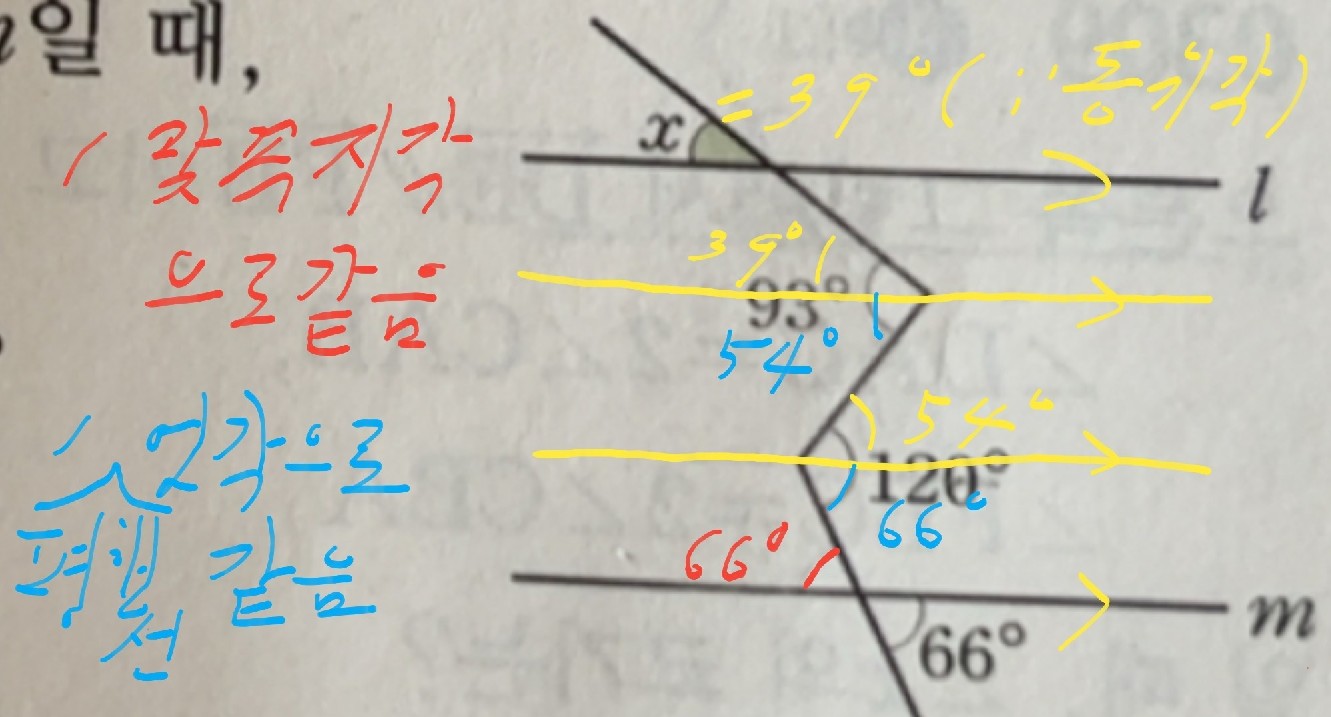 일 때,
x = 39° (∵ 동위각)
l
맞꼭지각
으로 같음
39°
93°
54°
54°
120°
66°
엇각으로
평행선 같음
66°
m
66°